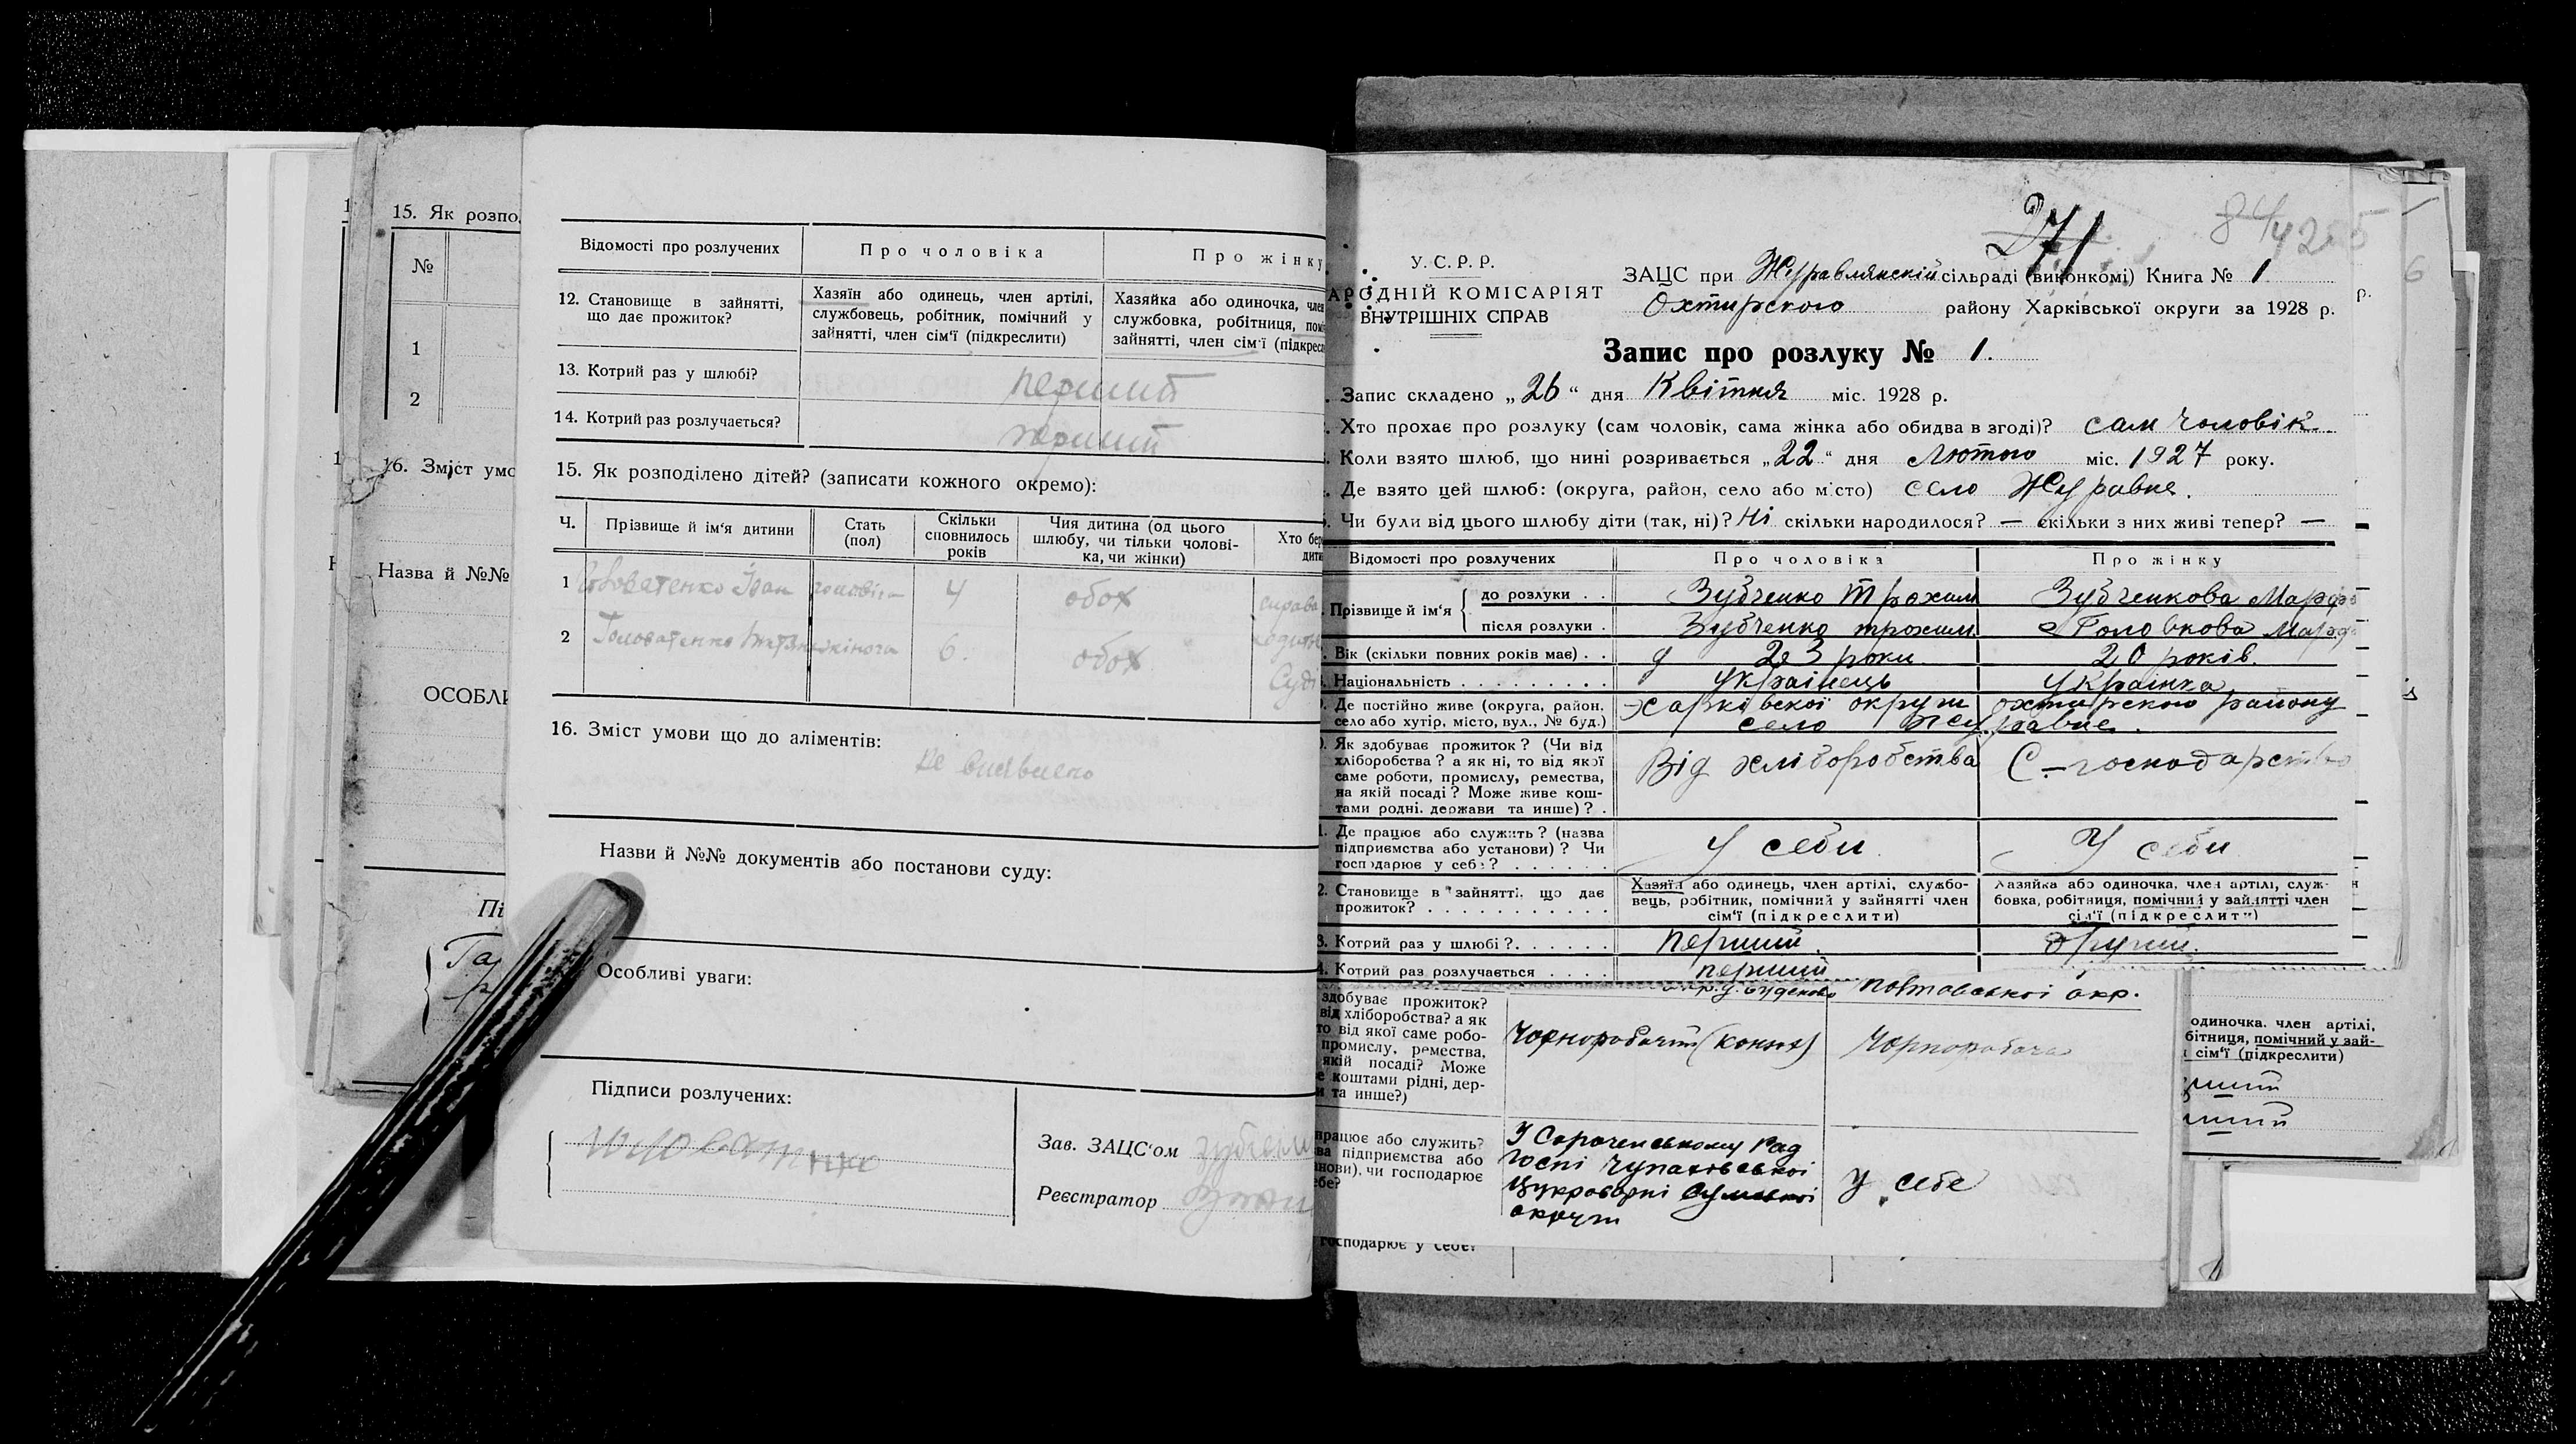 15. Як розпо
№
1
2
16. Зміст умо
Назва й №№
ОСОБЛ
Пі
Відомості про розлучених
Про чоловіка
Про жінку
12. Становище в зайнятті, що дає прожиток?
Хазяїн або одинець, член артілі,
службовець, робітник, помічний у
зайнятті, член сім'ї (підкреслити)
Хазяйка або одиночка, член
службовка, робітниця, помі
зайнятті, член сім'ї (підкресл
13. Котрий раз у шлюбі?
перший
14. Котрий раз розлучається?
перший
15. Як розподілено дітей? (записати кожного окремо):
Ч.
Прізвище й ім'я дитини
Стать
(пол)
Скільки
сповнилось
років
Чия дитина (од цього
шлюбу, чи тільки чолові-
ка, чи жінки)
Хто бер
дити
1 Головатенко Іван 4 обох
2 Головатенко жіноча 6. обох
16. Зміст умови що до аліментів:
не виявлено
Назви й №№ документів або постанови суду:
Особливі уваги:
Підписи розлучених:
Зав. ЗАЦС'ом
Реєстратор
271
У. С. Р. Р.
АРОДНІЙ КОМІСАРІЯТ
ВНУТРІШНІХ СПРАВ
ЗАЦС при Журавлянскій сільраді (виконкомі) Книга № 1
Охтирского району Харківської округи за 1928 р.
Запис про розлуку № 1.
Запис складено „26“ дня Квітня міс. 1928 р.
Хто прохає про розлуку (сам чоловік, сама жінка або обидва в згоді)? сам чоловік
Коли взято шлюб, що нині розривається „22“ дня Лютого міс. 1927 року.
Де взято цей шлюб: (округа, район, село або місто) село Журавне.
Чи були від цього шлюбу діти (так, ні)? Ні скільки народилося? — скільки з них живі тепер? —
Відомості про розлучених
Про чоловіка
Про жінку
Прізвище й ім'я
до розлуки . .
Зубченко Трохим
Зубченкова Марфа
після розлуки .
Зубченко трохим
Головкова Марфа
Вік (скільки повних років має) . .
23 роки
20 років.
Національність . . . . . . . . .
Українець
Українка
Де постійно живе (округа, район,
село або хутір, місто, вул., № буд.)
Харківскої округи охтирского району
село Журавне.
Як здобуває прожиток? (Чи від
хліборобства? а як ні, то від якої
саме роботи, промислу, ремества,
на якій посаді? Може живе кош-
тами родні, держави та инше)? .
Від хліборобства
С.-господарство
Де працює або служить? (назва
підприємства або установи)? Чи
господарює у себе? . . . . . .
У себи
У себи
2. Становище в зайнятті, що дає
прожиток? . . . . . . . . . . .
Хазяїн або одинець, член артілі, службо-
вець, робітник, помічний у зайнятті член
сім'ї (підкреслити)
Хазяйка або одиночка, член артілі, служ-
бовка, робітниця, помічний у зайнятті член
сім'ї (підкреслити)
3. Котрий раз у шлюбі?. . . . . .
перший.
другий.
4. Котрий раз розлучається . . . .
перший
Полтавської окр.
здобуває прожиток?
від хліборобства? а як
то від якої саме робо-
промислу, ремества,
якій посаді? Може
е коштами рідні, дер-
и та инше?)
Чорноробочий (конюх)
Чорноробоча
працює або служить?
ва підприємства або
нови), чи господарює
ебе?
У Сороченському Рад
госпі Чупахівської
Цукроварні Сумської
округи
У себе
господарює у себе?
одиночка, член артілі,
бітниця, помічний у зай-
сім'ї (підкреслити)